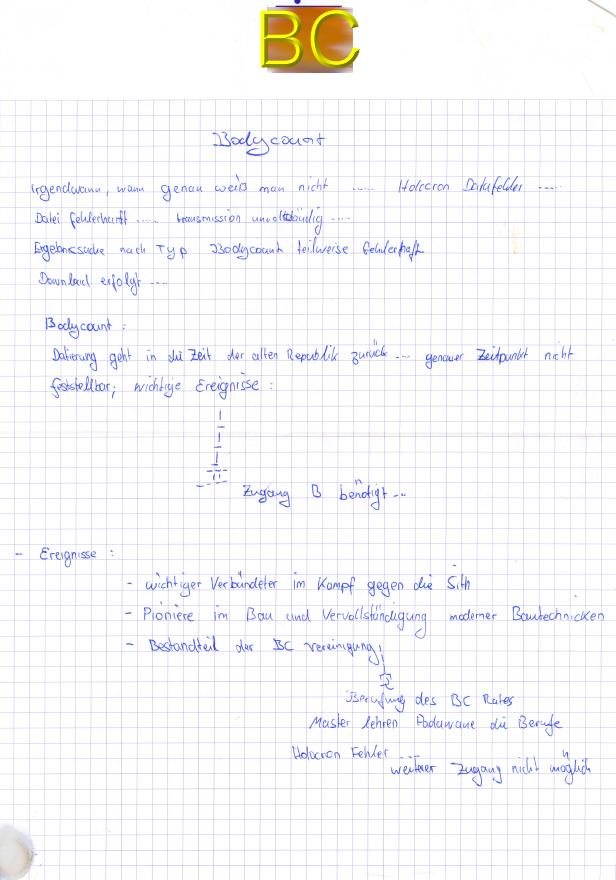 BC
Bodycount
Irgendwann, wann genau weiß man nicht ..... Holocron Datafelder .....
Datei fehlerhaft ..... transmission unvollständig ....
Ergebnissuche nach Typ Bodycount teilweise fehlerhaft
Download erfolgt ....
Bodycount :
Datierung geht in die Zeit der alten Republik zurück ... genauer Zeitpunkt nicht
feststellbar; wichtige Ereignisse :
Zugang B benötigt ...
- Ereignisse :
- wichtiger Verbündeter im Kampf gegen die Sith
- Pioniere im Bau und Vervollständigung moderner Bautechnicken
- Bestandteil der BC vereinigung;
Berufung des BC Rates
Master lehren Padawane die Berufe
Holocron Fehler ....
weiterer Zugang nicht möglich